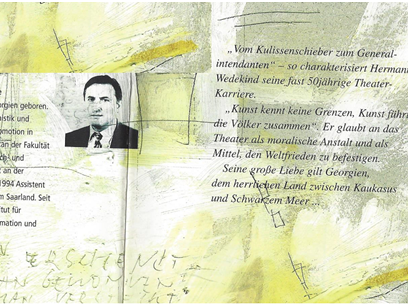 e
rgien geboren.
nistik und
omotion in
an der Fakultät
sch- und
t an der
1994 Assistent
m Saarland. Seit
tut für
mation und
„Vom Kulissenschieber zum General-
intendanten“ – so charakterisiert Hermann
Wedekind seine fast 50jährige Theater-
Karriere.
„Kunst kennt keine Grenzen, Kunst führt
die Völker zusammen“. Er glaubt an das
Theater als moralische Anstalt und als
Mittel, den Weltfrieden zu befestigen.
Seine große Liebe gilt Georgien,
dem herrlichen Land zwischen Kaukasus
und Schwarzem Meer ...